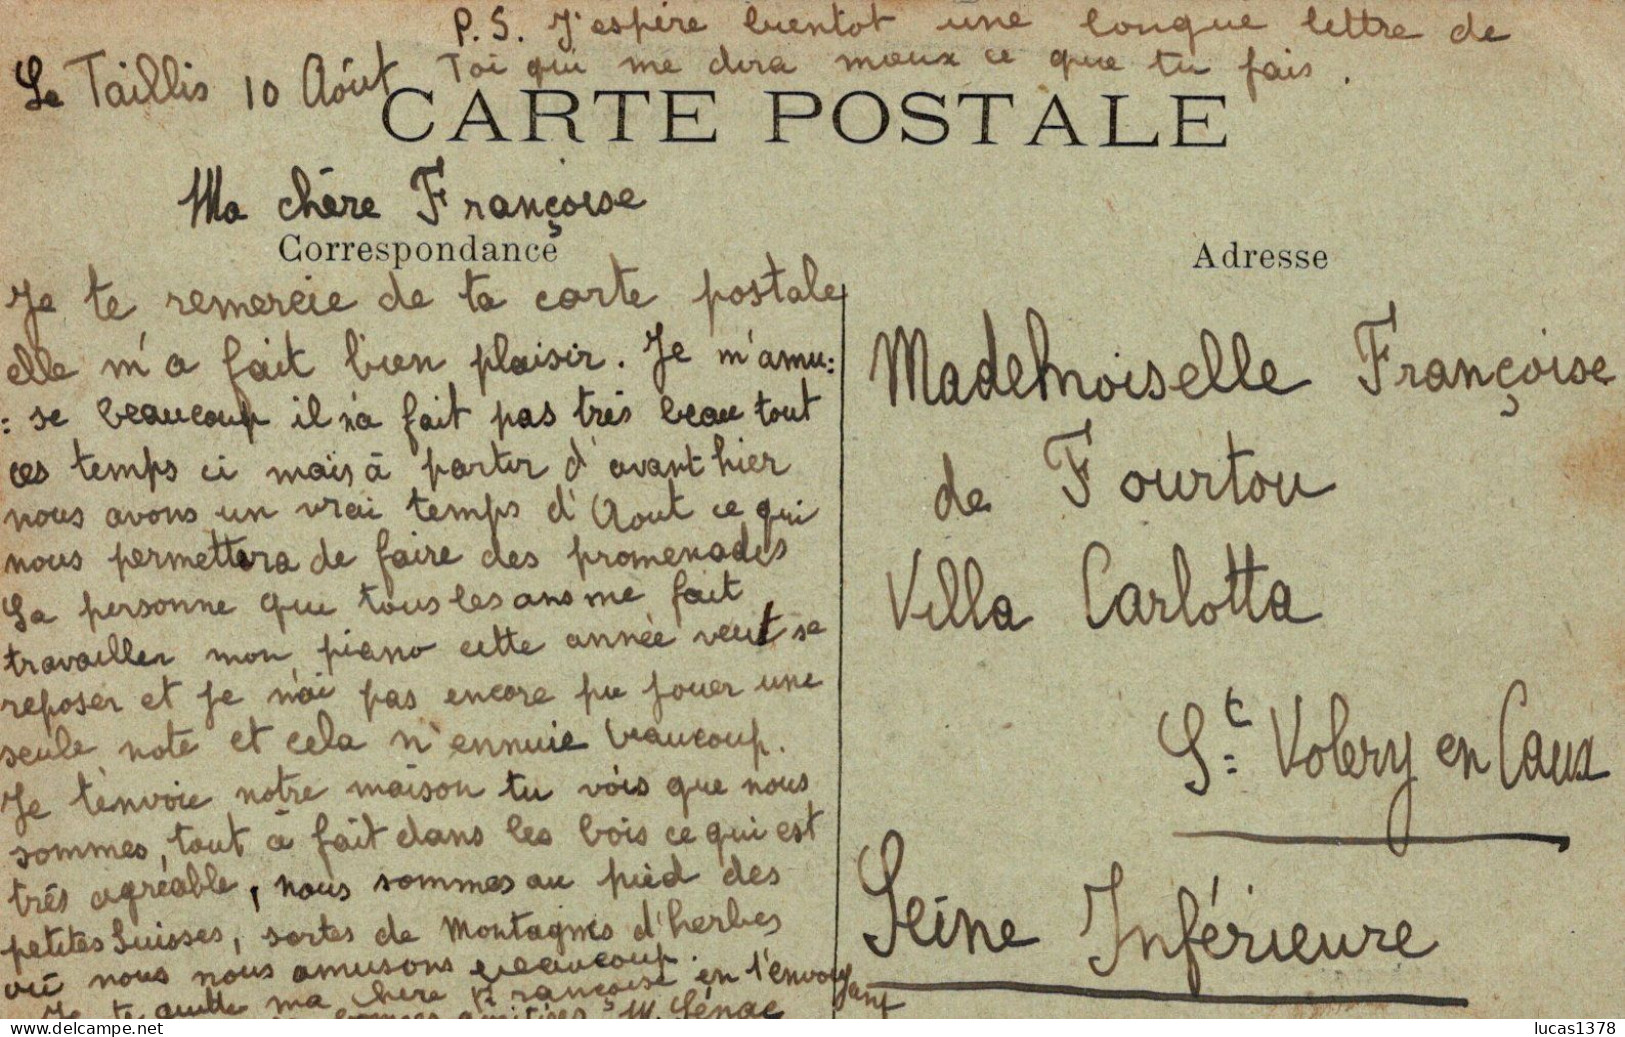 P.S. J'espère bientot une longue lettre de
Toi qui me dira mieux ce que tu fais.
Le Taillis 10 Août
CARTE POSTALE
Ma chère Françoise
Correspondance
Je te remercie de ta carte postale
elle m'a fait bien plaisir. Je m'amu:
: se beaucoup il n'a fait pas très beau tout
ces temps ci mais à partir d'avant hier
nous avons un vrai temps d'Aout ce qui
nous permettera de faire des promenades
La personne que tous les ans me fait
travailler mon piano cette année veut se
reposer et je n'ai pas encore pu jouer une
seule note et cela n'ennuie beaucoup.
Je t'envoie notre maison tu vois que nous
sommes, tout à fait dans les bois ce qui est
très agréable, nous sommes au pied des
petites Suisses, sortes de Montagnes d'herbes
où nous nous amusons beaucoup.
Je te quitte ma chère Françoise en t'envoyant
bonnes amitiés M. Sénac
Adresse
Mademoiselle Françoise
de Fourtou
Villa Carlotta
St Valery en Caux
Seine Inférieure
delcampe.net
lucas1378